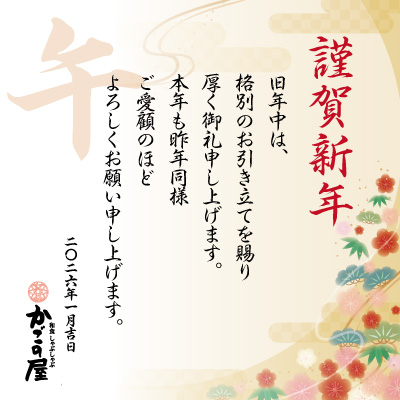 謹賀新年
旧年中は、
格別のお引き立てを賜り
厚く御礼申し上げます。
本年も昨年同様
ご愛顧のほど
よろしくお願い申し上げます。
午
二〇二六年一月吉日
和食 しゃぶしゃぶ
かごの屋